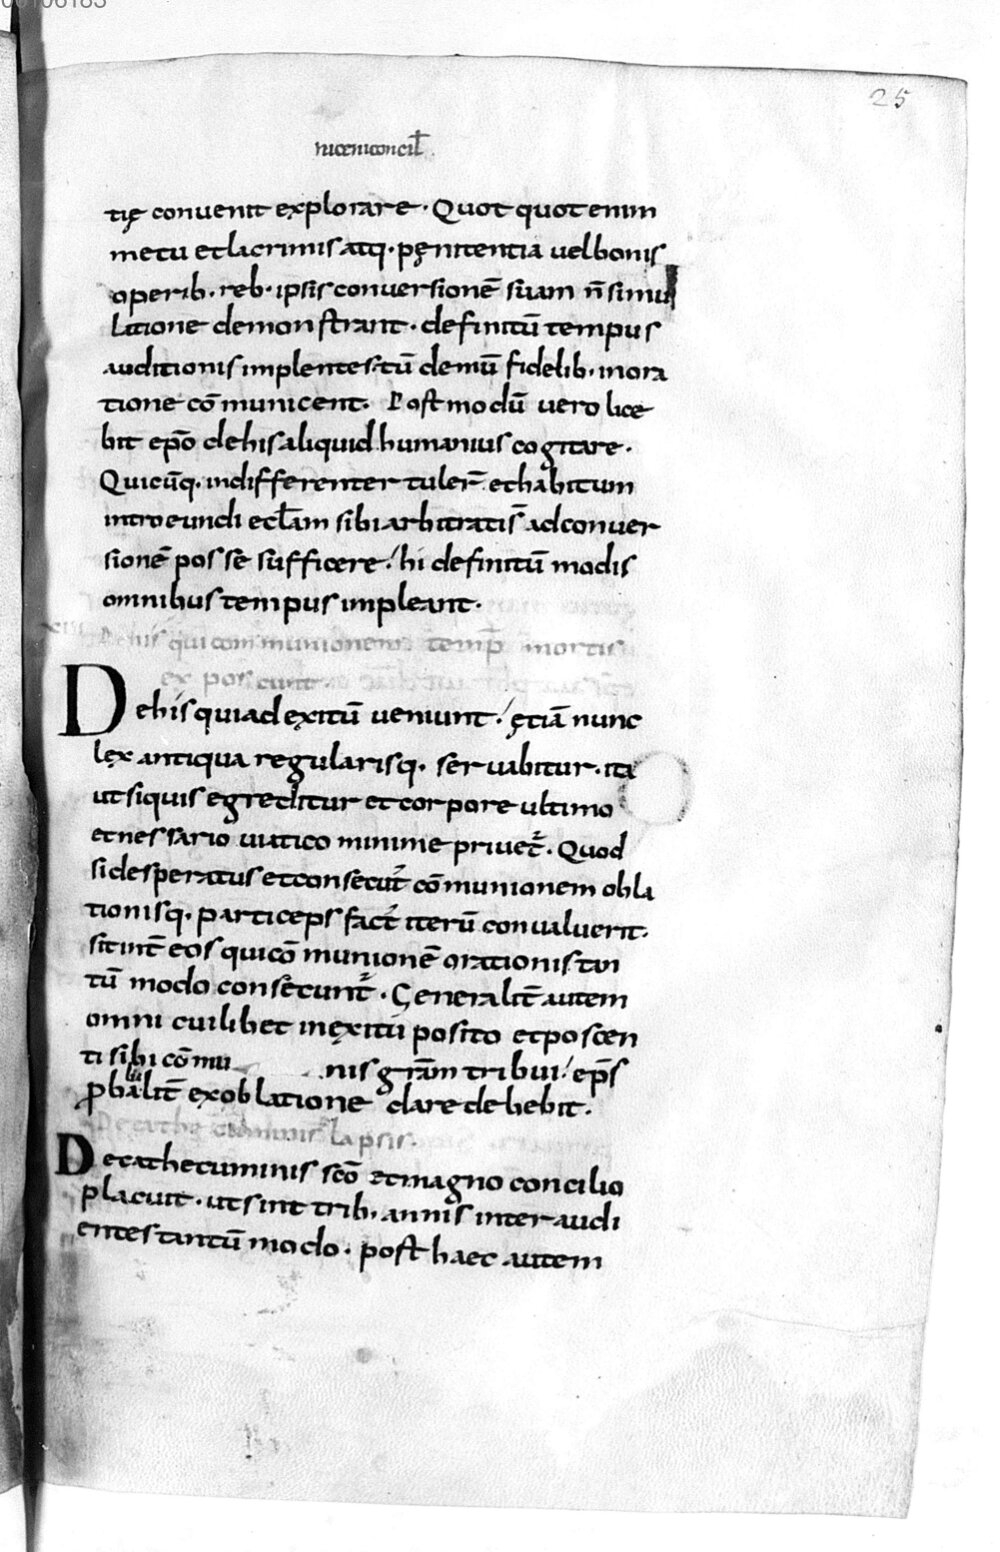 25
niceni concil̄.
tię conuenit explorare. Quot quot enim
metu et lacrimis atq. pęnitentia uel bonis
operib. reb. ipsis conuersionē suam n̄ simu
latione demonstrant. definitū tempus
auditionis implentes. tū demū fidelib. in ora
tione cōmunicent. Postmodū uero lice
bit ep̄o de his aliquid humanius cogitare.
Quicūq. indifferenter tuler̄ et habitum
introeundi ecl̄am sibi arbitratis̄ ad conuer
sionē posse sufficere. hi definitū modis
omnibus tempus impleant.
De his qui communionem temp̄ mortis
ex poscunt
De his qui ad exitū ueniunt. ętiā nunc
lex antiqua regularisq. seruabitur. ita
ut siquis egreditur et corpore ultimo
et nessario uiatico minime priuet̄. Quod
si desperatus et consecut̄ cōmunionem obla
tionisq. particeps fact̄ iterū conualuerit.
sit int̄ eos qui cōmunionē orationis tan
tū modo consecunt̄. Generalit̄ autem
omni cuilibet in exitu posito et poscen
ti sibi cōmu nis gr̄am tribui. ep̄s
p̄babilit̄ ex oblatione dare debebit.
De cathecuminis lapsis.
De cathecuminis sc̄o et magno concilio
placuit. ut sint trib. annis inter audi
entes tantū modo. post haec autem